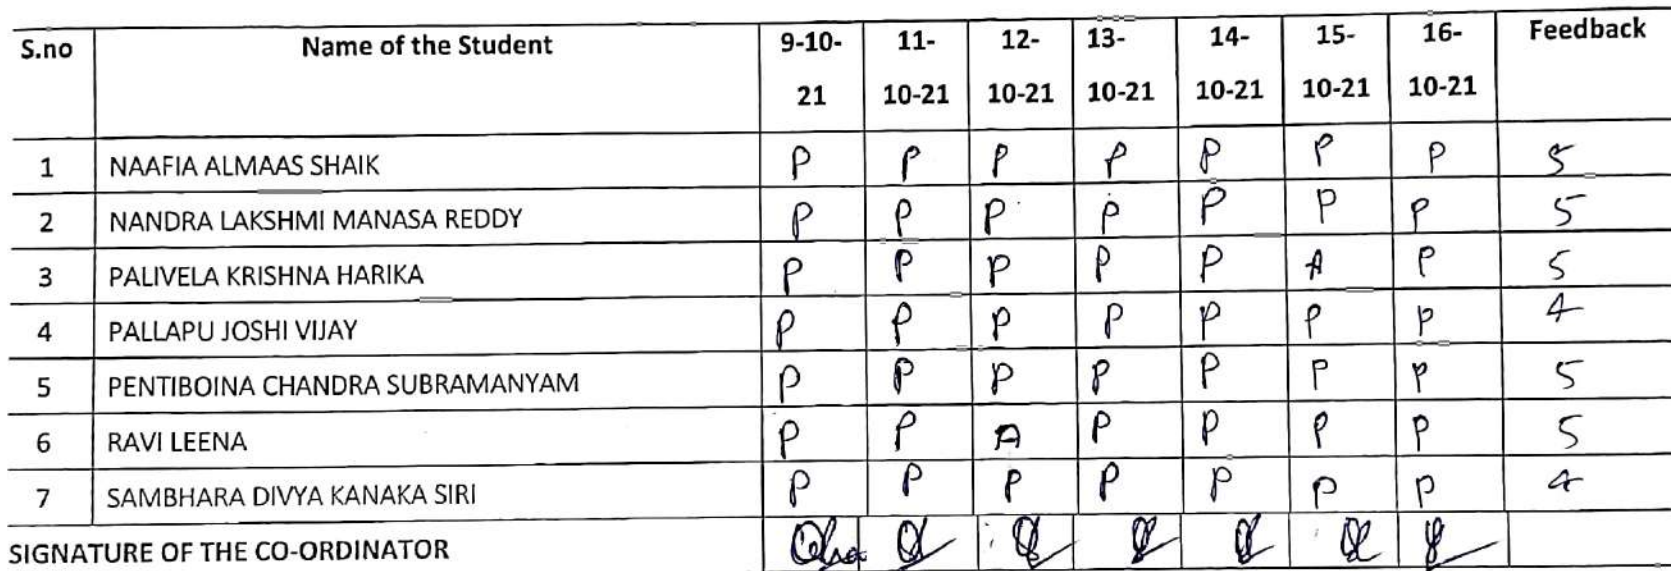 S.no Name of the Student 9-10- 11- 12- 13- 14- 15- 16- Feedback
21 10-21 10-21 10-21 10-21 10-21 10-21
1 NAAFIA ALMAAS SHAIK P P P P P P P 5
2 NANDRA LAKSHMI MANASA REDDY P P P P P P P 5
3 PALIVELA KRISHNA HARIKA P P P P P A P 5
4 PALLAPU JOSHI VIJAY P P P P P P P 4
5 PENTIBOINA CHANDRA SUBRAMANYAM P P P P P P P 5
6 RAVI LEENA P P A P P P P 5
7 SAMBHARA DIVYA KANAKA SIRI P P P P P P P 4
SIGNATURE OF THE CO-ORDINATOR